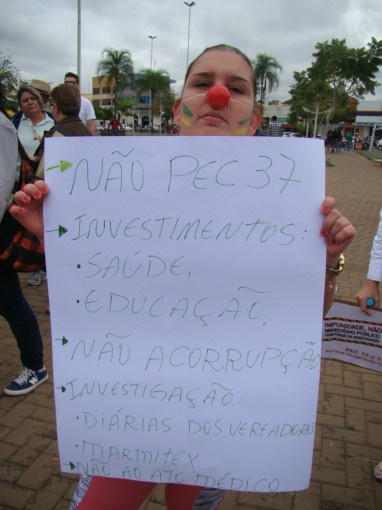 NÃO PEC 37
INVESTIMENTOS:
• SAÚDE,
• EDUCAÇÃO,
NÃO ACORRUPÇÃO
INVESTIGAÇÃO:
• DIÁRIAS DOS VEREADORES
• MARMITEX
NÃO AO ATO MÉDICO
IMPUNIDADE, NÃO
MINISTÉRIO PÚBLICO
PEC 37